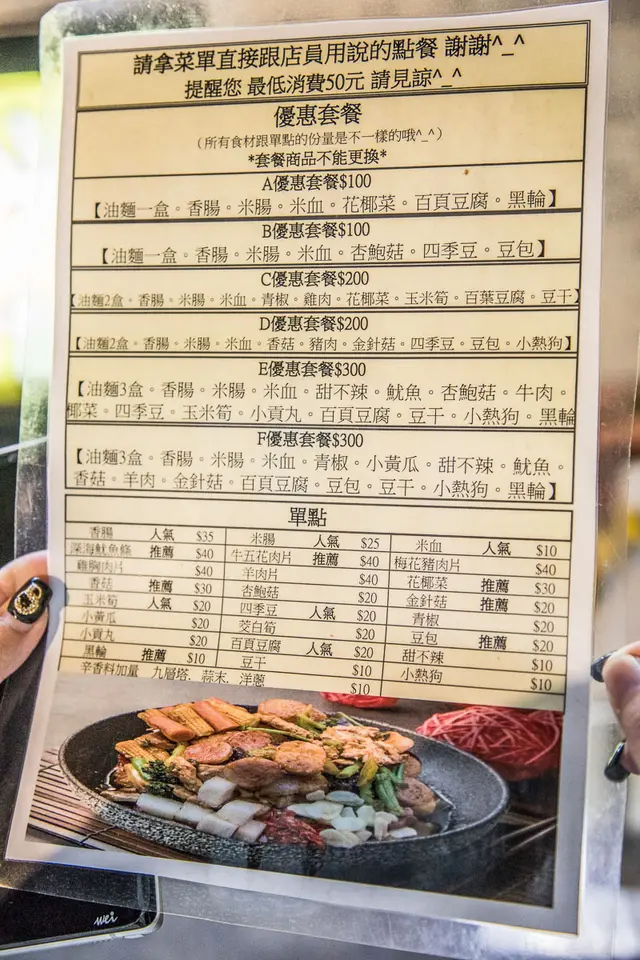 請拿菜單直接跟店員用說的點餐 謝謝^_^
提醒您 最低消費50元 請見諒^_^
優惠套餐
(所有食材跟單點的份量是不一樣的哦^_^)
*套餐商品不能更換*
A優惠套餐$100
【油麵一盒。香腸。米腸。米血。花椰菜。百頁豆腐。黑輪】
B優惠套餐$100
【油麵一盒。香腸。米腸。米血。杏鮑菇。四季豆。豆包】
C優惠套餐$200
【油麵2盒。香腸。米腸。米血。青椒。雞肉。花椰菜。玉米筍。百葉豆腐。豆干】
D優惠套餐$200
【油麵2盒。香腸。米腸。米血。香菇。豬肉。金針菇。四季豆。豆包。小熱狗】
E優惠套餐$300
【油麵3盒。香腸。米腸。米血。甜不辣。魷魚。杏鮑菇。牛肉。
椰菜。四季豆。玉米筍。小貢丸。百頁豆腐。豆干。小熱狗。黑輪
F優惠套餐$300
【油麵3盒。香腸。米腸。米血。青椒。小黃瓜。甜不辣。魷魚。
香菇。羊肉。金針菇。百頁豆腐。豆包。豆干。小熱狗。黑輪】
單點
香腸 人氣 $35 米腸 人氣 $25 米血 人氣 $10
深海魷魚條 推薦 $40 牛五花肉片 推薦 $40 梅花豬肉片 $40
雞胸肉片 $40 羊肉片 $40 花椰菜 推薦 $30
香菇 推薦 $30 杏鮑菇 $20 金針菇 推薦 $20
玉米筍 人氣 $20 四季豆 人氣 $20 青椒 $20
小黃瓜 $20 茭白筍 $20 豆包 推薦 $20
小貢丸 $20 百頁豆腐 人氣 $20 甜不辣 $10
黑輪 推薦 $10 豆干 $10 小熱狗 $10
辛香料加量 九層塔、蒜末、洋蔥 $10
wei